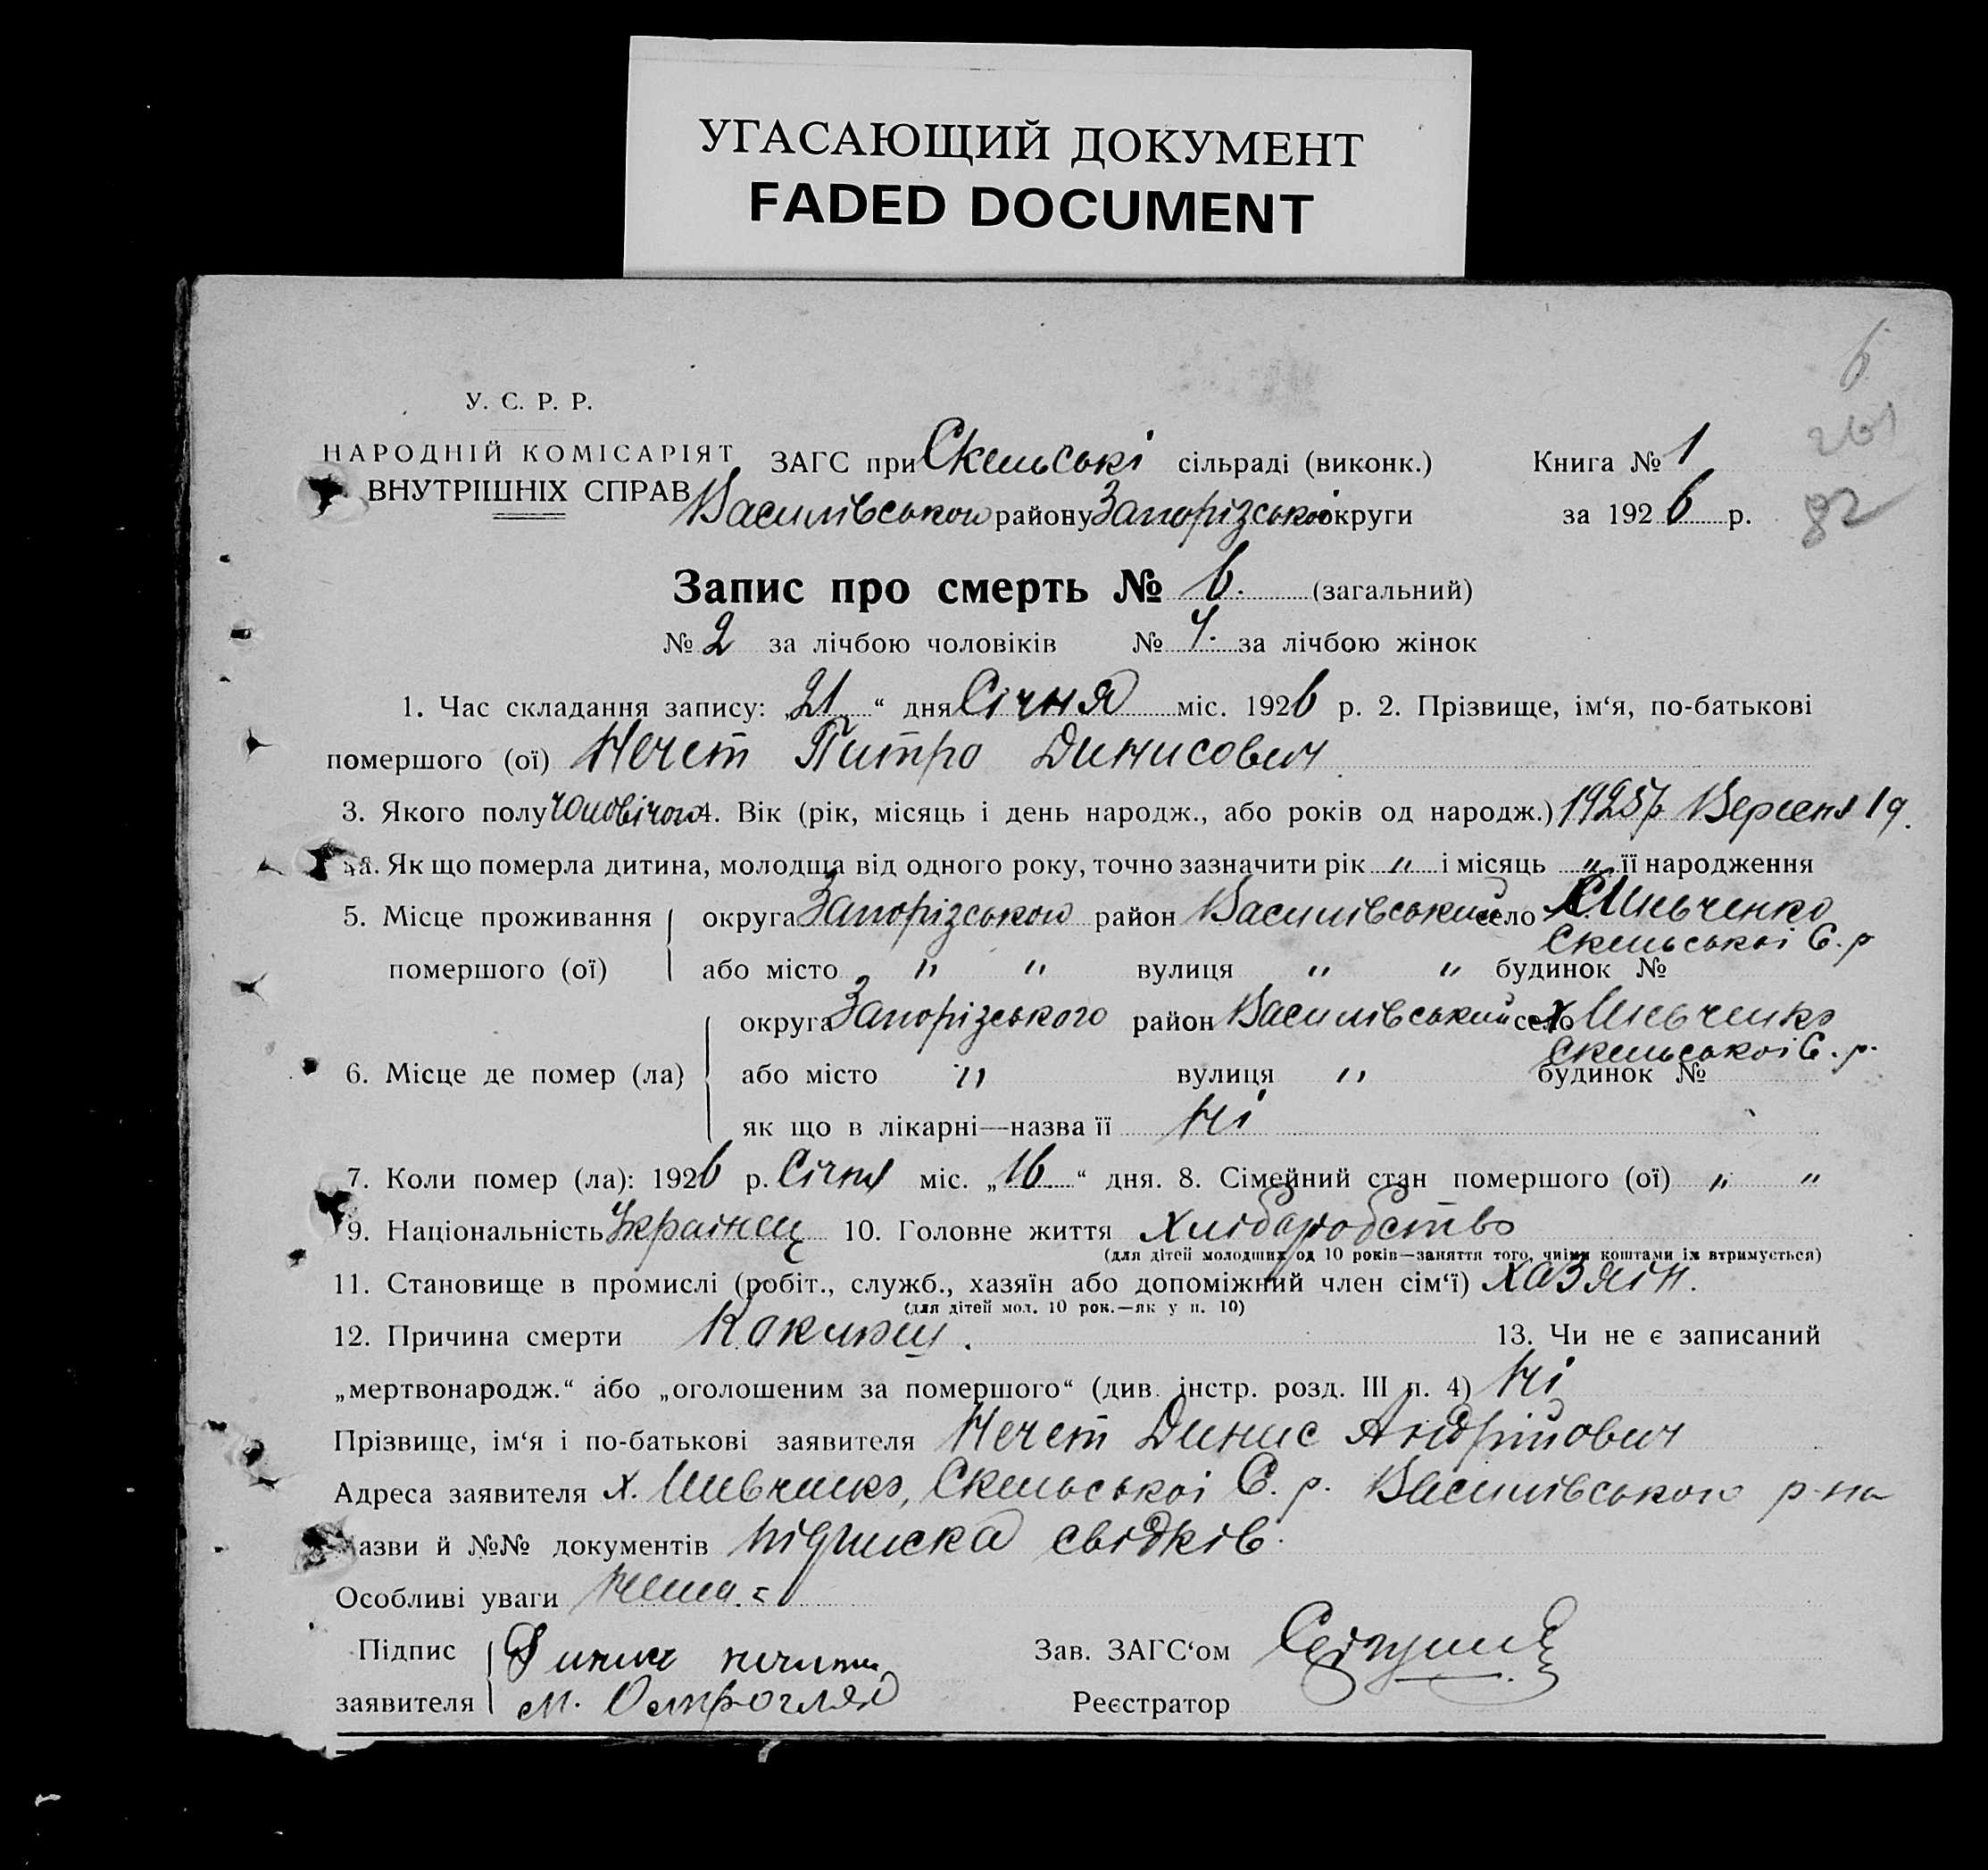 УГАСАЮЩИЙ ДОКУМЕНТ
FADED DOCUMENT
6
261
82
У. С. Р. Р.
НАРОДНІЙ КОМІСАРІЯТ
ВНУТРІШНІХ СПРАВ
ЗАГС при Скельські сільраді (виконк.) Книга № 1
Василівського району Запорізської округи за 1926 р.
Запис про смерть № 6. (загальний)
№ 2 за лічбою чоловіків № 4. за лічбою жінок
1. Час складання запису: „21“ дня Січня міс. 1926 р. 2. Прізвище, ім‘я, по-батькові
помершого (ої) Нечет Питро Динисович
3. Якого полу чоловічого 4. Вік (рік, місяць і день народж., або років од народж.) 1925р Вересня 19.
4а. Як що померла дитина, молодща від одного року, точно зазначити рік " і місяць " її народження
5. Місце проживання округа Запорізського район Василівський село х.
Скельської С. р
помершого (ої) або місто " " вулиця " " будинок №
округа Запорізського район Василівський село х
Скельської С. р.
6. Місце де помер (ла) або місто " вулиця " будинок №
як що в лікарні—назва її Ні
7. Коли помер (ла): 1926 р. Січня міс. „16“ дня. 8. Сімейний стан помершого (ої) " "
9. Національність Українец 10. Головне життя хліборобство
(для дітей молодших од 10 років—заняття того, чиїми коштами їх втримується)
11. Становище в промислі (робіт., служб., хазяїн або допоміжний член сім‘ї) хазяїн.
(для дітей мол. 10 рок.—як у п. 10)
12. Причина смерти Коклюш. 13. Чи не є записаний
„мертвонародж.“ або „оголошеним за помершого“ (див. інстр. розд. III п. 4) Ні
Прізвище, ім‘я і по-батькові заявителя Нечет Динис Андрійович
Адреса заявителя х. Скельської С. р. Василівського р-на
азви й №№ документів підписка свідків.
Особливі уваги Нема
Підпис Динис Зав. ЗАГС‘ом
заявителя М. Острогляд Реєстратор